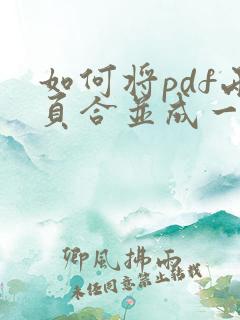 如何将pdf
页合并成一
卿風拂雨
未经同意禁止转载